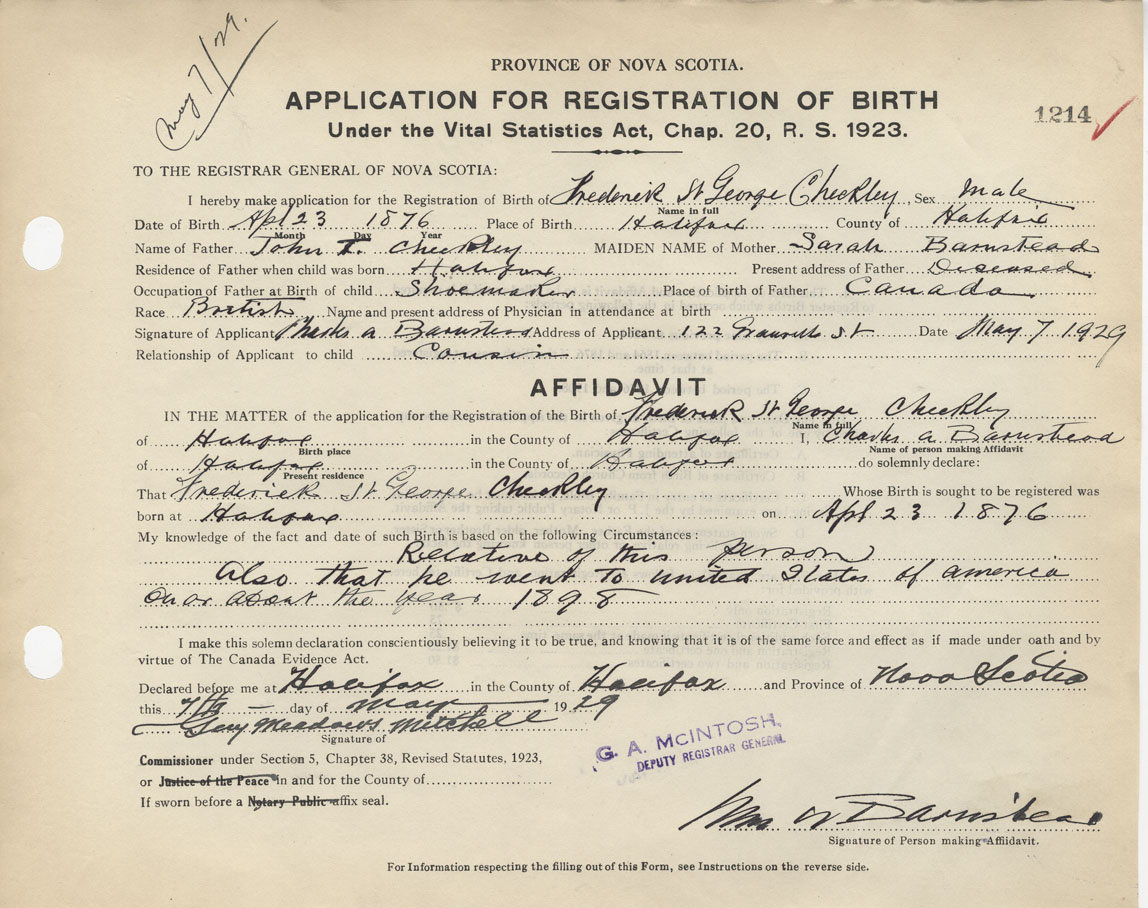 May 7/29.
PROVINCE OF NOVA SCOTIA.
APPLICATION FOR REGISTRATION OF BIRTH
1214
Under the Vital Statistics Act, Chap. 20, R. S. 1923.
TO THE REGISTRAR GENERAL OF NOVA SCOTIA:
I hereby make application for the Registration of Birth of Frederick St George Checkley Sex Male
Name in full
Date of Birth Apl 23 1876 Place of Birth Halifax County of Halifax
Month Day Year
Name of Father John I. Checkley MAIDEN NAME of Mother Sarah Barnstead
Residence of Father when child was born Halifax Present address of Father Diseased
Occupation of Father at Birth of child Shoemaker Place of birth of Father Canada
Race British Name and present address of Physician in attendance at birth
Signature of Applicant Charles a Barnstead Address of Applicant 122 Granville St Date May 7 1929
Relationship of Applicant to child Cousin
AFFIDAVIT
IN THE MATTER of the application for the Registration of the Birth of Frederick St George Checkley
Name in full
of Halifax in the County of Halifax I, Charles a Barnstead
Birth place Name of person making Affidavit
of Halifax in the County of Halifax do solemnly declare:
Present residence
That Frederick St. George Checkley Whose Birth is sought to be registered was
born at Halifax on Apl 23 1876
My knowledge of the fact and date of such Birth is based on the following Circumstances:
Relative of this person
Also that he went to united States of america
on or about the year 1898
I make this solemn declaration conscientiously believing it to be true, and knowing that it is of the same force and effect as if made under oath and by
virtue of The Canada Evidence Act.
Declared before me at Halifax in the County of Halifax and Province of Nova Scotia
this 7th day of May 1929
Guy Meadows Mitchell
Signature of
G. A. McINTOSH,
DEPUTY REGISTRAR GENERAL
Commissioner under Section 5, Chapter 38, Revised Statutes, 1923,
or Justice of the Peace in and for the County of
If sworn before a Notary Public affix seal.
Barnstead
Signature of Person making Affidavit.
For Information respecting the filling out of this Form, see Instructions on the reverse side.